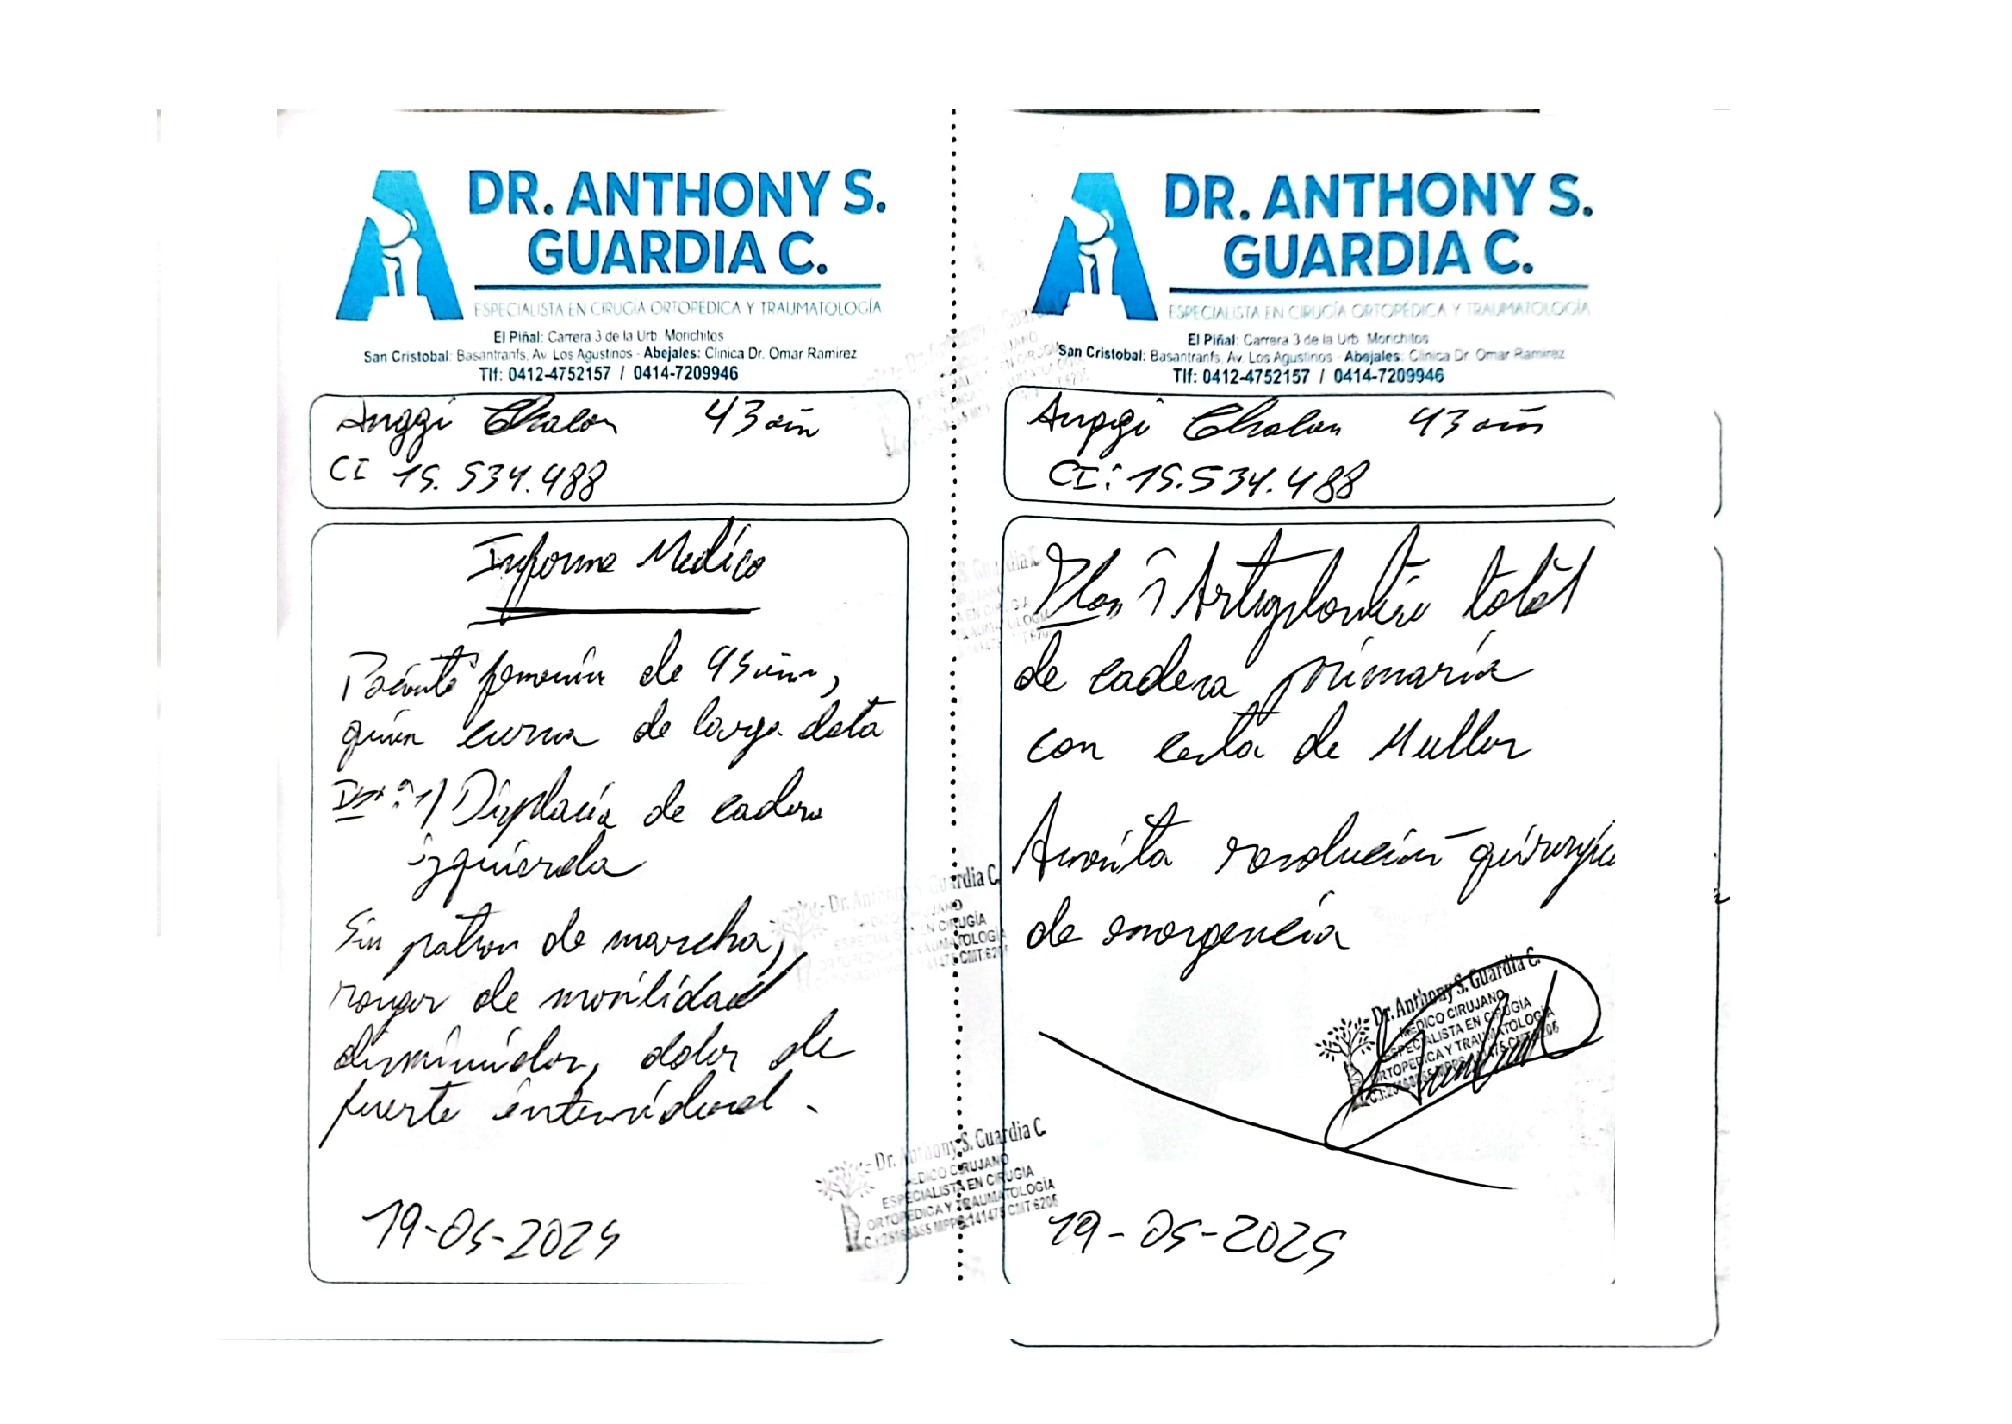 DR. ANTHONY S.
GUARDIA C.
ESPECIALISTA EN CIRUGÍA ORTOPÉDICA Y TRAUMATOLOGÍA
El Piñal: Carrera 3 de la Urb. Morichitos
San Cristobal: Basantranfs, Av. Los Agustinos - Abejales: Clinica Dr. Omar Ramirez
Tlf: 0412-4752157 / 0414-7209946
Anggi Chacon 43 años
CI 15.534.488
Informe Medico
Paciente femenin de 43 años,
quien cursa de larga data
Dx: 1/ Displasia de cadera
izquierda
Sin patron de marcha,
rangos de movilidad
disminuidos, dolor de
fuerte intensidad.
19-05-2025
DR. ANTHONY S.
GUARDIA C.
ESPECIALISTA EN CIRUGÍA ORTOPÉDICA Y TRAUMATOLOGÍA
El Piñal: Carrera 3 de la Urb. Morichitos
San Cristobal: Basantranfs, Av. Los Agustinos - Abejales: Clinica Dr. Omar Ramirez
Tlf: 0412-4752157 / 0414-7209946
Anggi Chacon 43 años
CI: 15.534.488
Plan: Artroplastia total
de cadera primaria
con cesta de Muller
Amerita resolución quirurgica
de emergencia
Dr. Anthony S. Guardia C.
MEDICO CIRUJANO
ESPECIALISTA EN CIRUGÍA
ORTOPEDICA Y TRAUMATOLOGÍA
19-05-2025
Dr. Anthony S. Guardia C.
MEDICO CIRUJANO
ESPECIALISTA EN CIRUGIA
ORTOPEDICA Y TRAUMATOLOGÍA